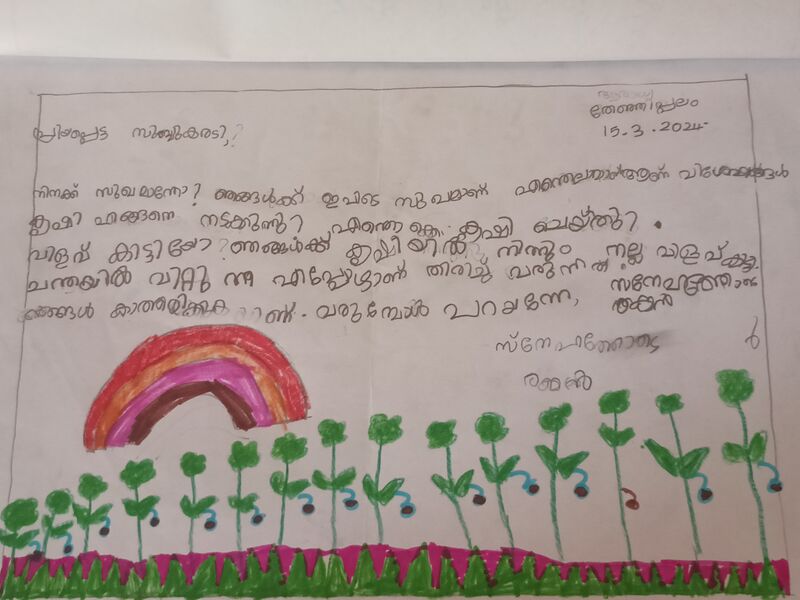 തേഞ്ഞിപ്പലം
15.3.2024
പ്രിയപ്പെട്ട സിബ്ബുകരടി,
നിനക്ക് സുഖമാന്നോ? ഞങ്ങൾക്ക് ഇവിടെ സുഖമാണ് വിശേഷങ്ങൾ
കൃഷി എങ്ങനെ നടക്കുന്നു? എന്തൊക്കെ കൃഷി ചെയ്തു?
വിളവ് കിട്ടിയോ? ഞങ്ങൾക്ക് കൃഷിയിൽ നിന്നും നല്ല വിളവ് കിട്ടി.
ചന്തയിൽ വിറ്റു നീ എപ്പോഴാണ് തിരിച്ചു വരുന്നത്?
ഞങ്ങൾ വരുമ്പോൾ പറയണേ,
സ്നേഹത്തോടെ